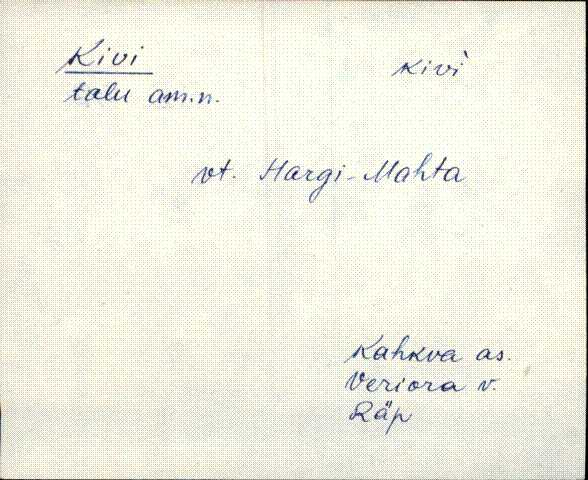 Kivi kivì
talu am.n.
vt. Hargi-Mahta
Kahkva as.
Veriora v.
Räp